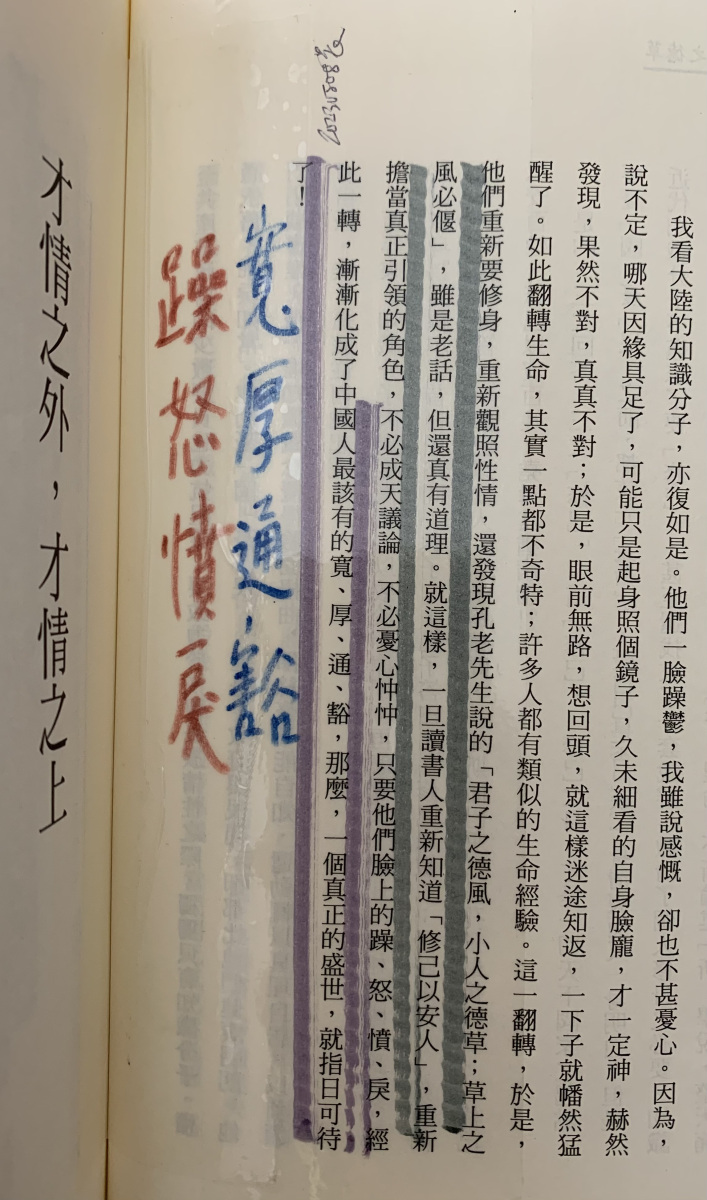 我看大陸的知識分子，亦復如是。他們一臉躁鬱，我雖說感慨，卻也不甚憂心。因為，
說不定，哪天因緣具足了，可能只是起身照個鏡子，久未細看的自身臉龐，才一定神，赫然
發現，果然不對，真真不對；於是，眼前無路，想回頭，就這樣迷途知返，一下子就幡然猛
醒了。如此翻轉生命，其實一點都不奇特；許多人都有類似的生命經驗。這一翻轉，於是，
他們重新要修身，重新觀照性情，還發現孔老先生說的「君子之德風，小人之德草；草上之
風必偃」，雖是老話，但還真有道理。就這樣，一旦讀書人重新知道「修己以安人」，重新
擔當真正引領的角色，不必成天議論，不必憂心忡忡，只要他們臉上的躁、怒、憤、戾，經
此一轉，漸漸化成了中國人最該有的寬、厚、通、豁，那麼，一個真正的盛世，就指日可待
了！
寬厚通豁
躁怒憤戾
才情之外，才情之上